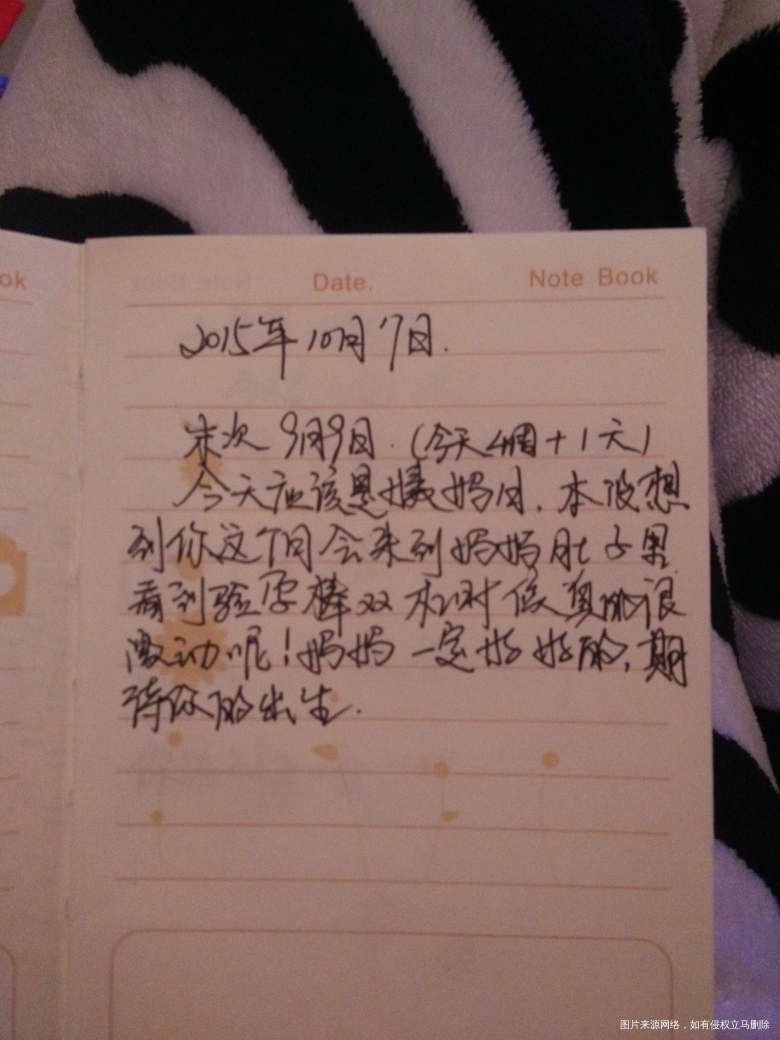 ok
Date.
Note Book
2015年10月7日.
末次 9月9日.(今天4周+1天)
今天应该是姨妈日.本没想
到你这个月会来到妈妈肚子里
看到验孕棒双杠时候真的很
激动呢!妈妈一定好好的,期
待你的出生.
图片来源网络,如有侵权立马删除